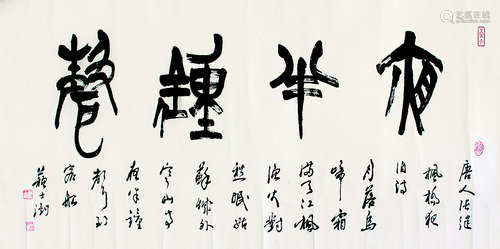 夜半鍾聲
唐人張繼
楓橋夜
泊詩
月落烏
啼霜
滿天江楓
漁火對
愁眠姑
蘇城外
寒山寺
夜半鐘
聲到
客船
蘇士澍